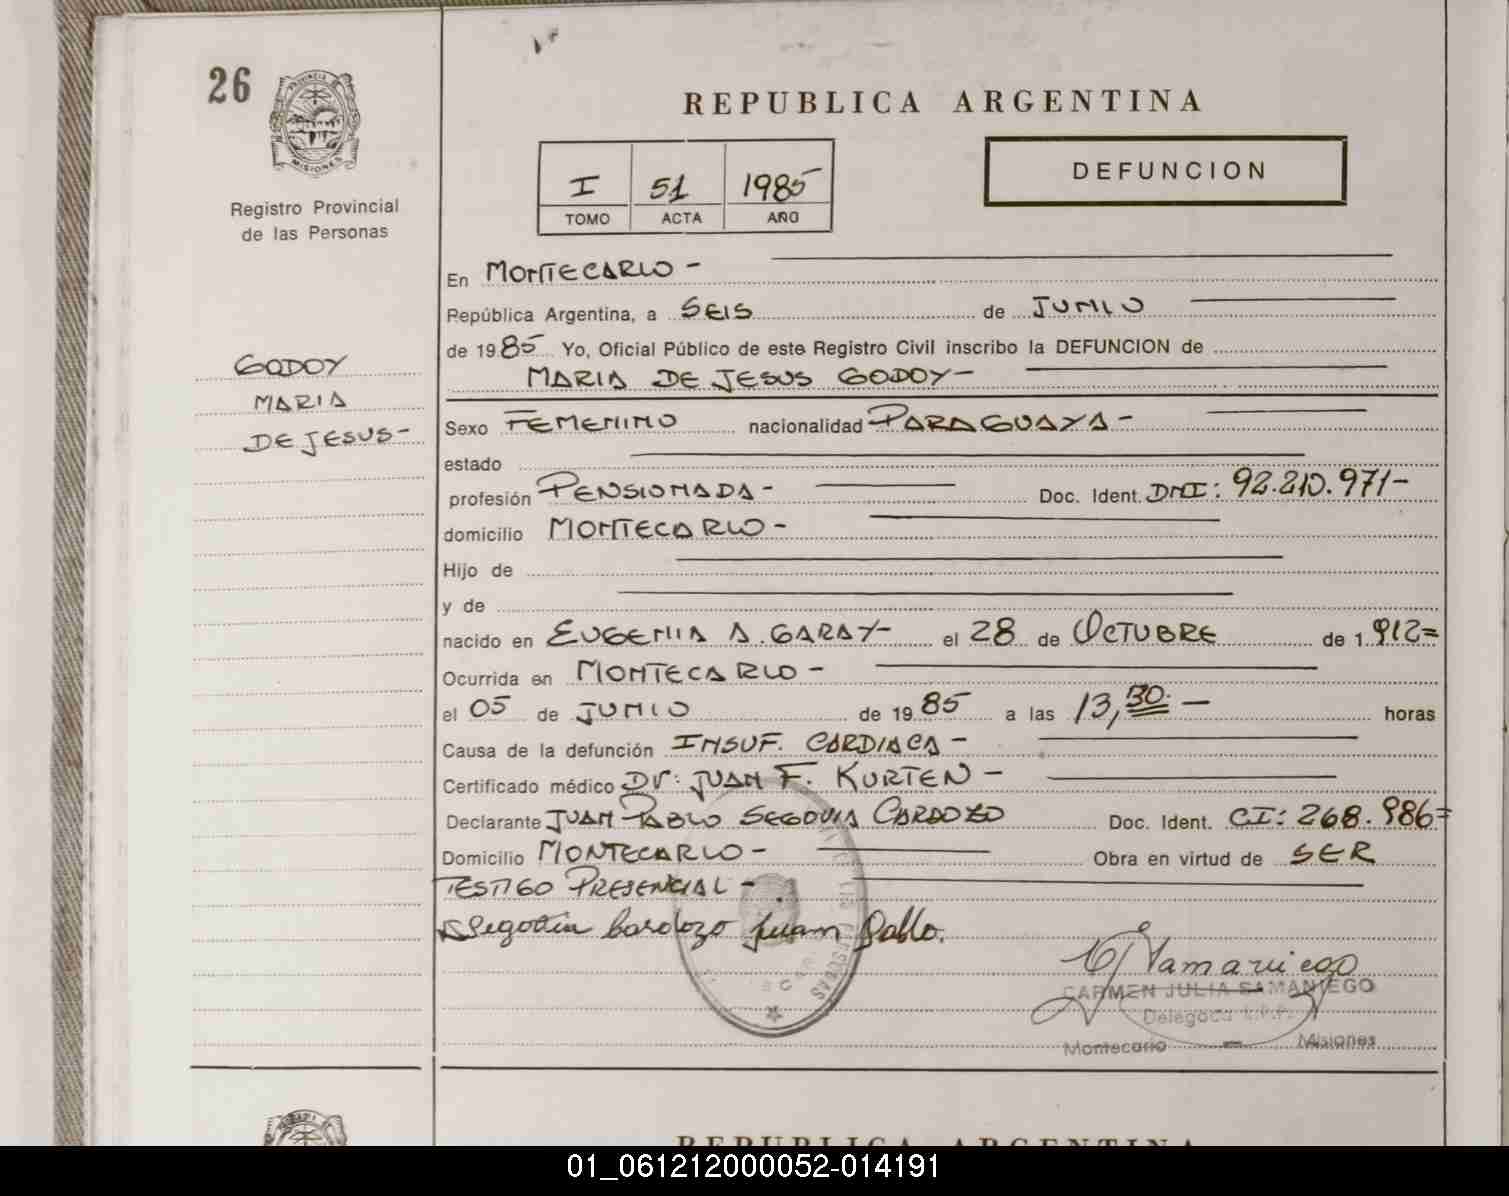 26
PROVINCIA DE
MISIONES
REPUBLICA ARGENTINA
I 51 1985
TOMO ACTA AÑO
DEFUNCION
Registro Provincial
de las Personas
GODOY
MARIA
DE JESUS-
En MONTECARLO -
República Argentina, a SEIS de JUNIO
de 1985 Yo, Oficial Público de este Registro Civil inscribo la DEFUNCION de
MARIA DE JESUS GODOY-
Sexo FEMENINO nacionalidad PARAGUAYA-
estado
profesión PENSIONADA- Doc. Ident. DNI: 92.210.971-
domicilio MONTECARLO -
Hijo de
y de
nacido en EUGENIA A. GARAY- el 28 de OCTUBRE de 1.912=
Ocurrida en MONTECARLO -
el 05 de JUNIO de 1985 a las 13,30.- horas
Causa de la defunción INSUF. CARDIACA -
Certificado médico Dr: JUAN F. KURTEN -
Declarante JUAN PABLO SEGOVIA CARDOZO Doc. Ident. CI: 268.986=
Domicilio MONTECARLO - Obra en virtud de SER
TESTIGO PRESENCIAL -
Segovia Cardozo Juan Pablo.
CARMEN JULIA SAMANIEGO
Montecarlo - Misiones
REPUBLICA ARGENTINA
01_061212000052-014191